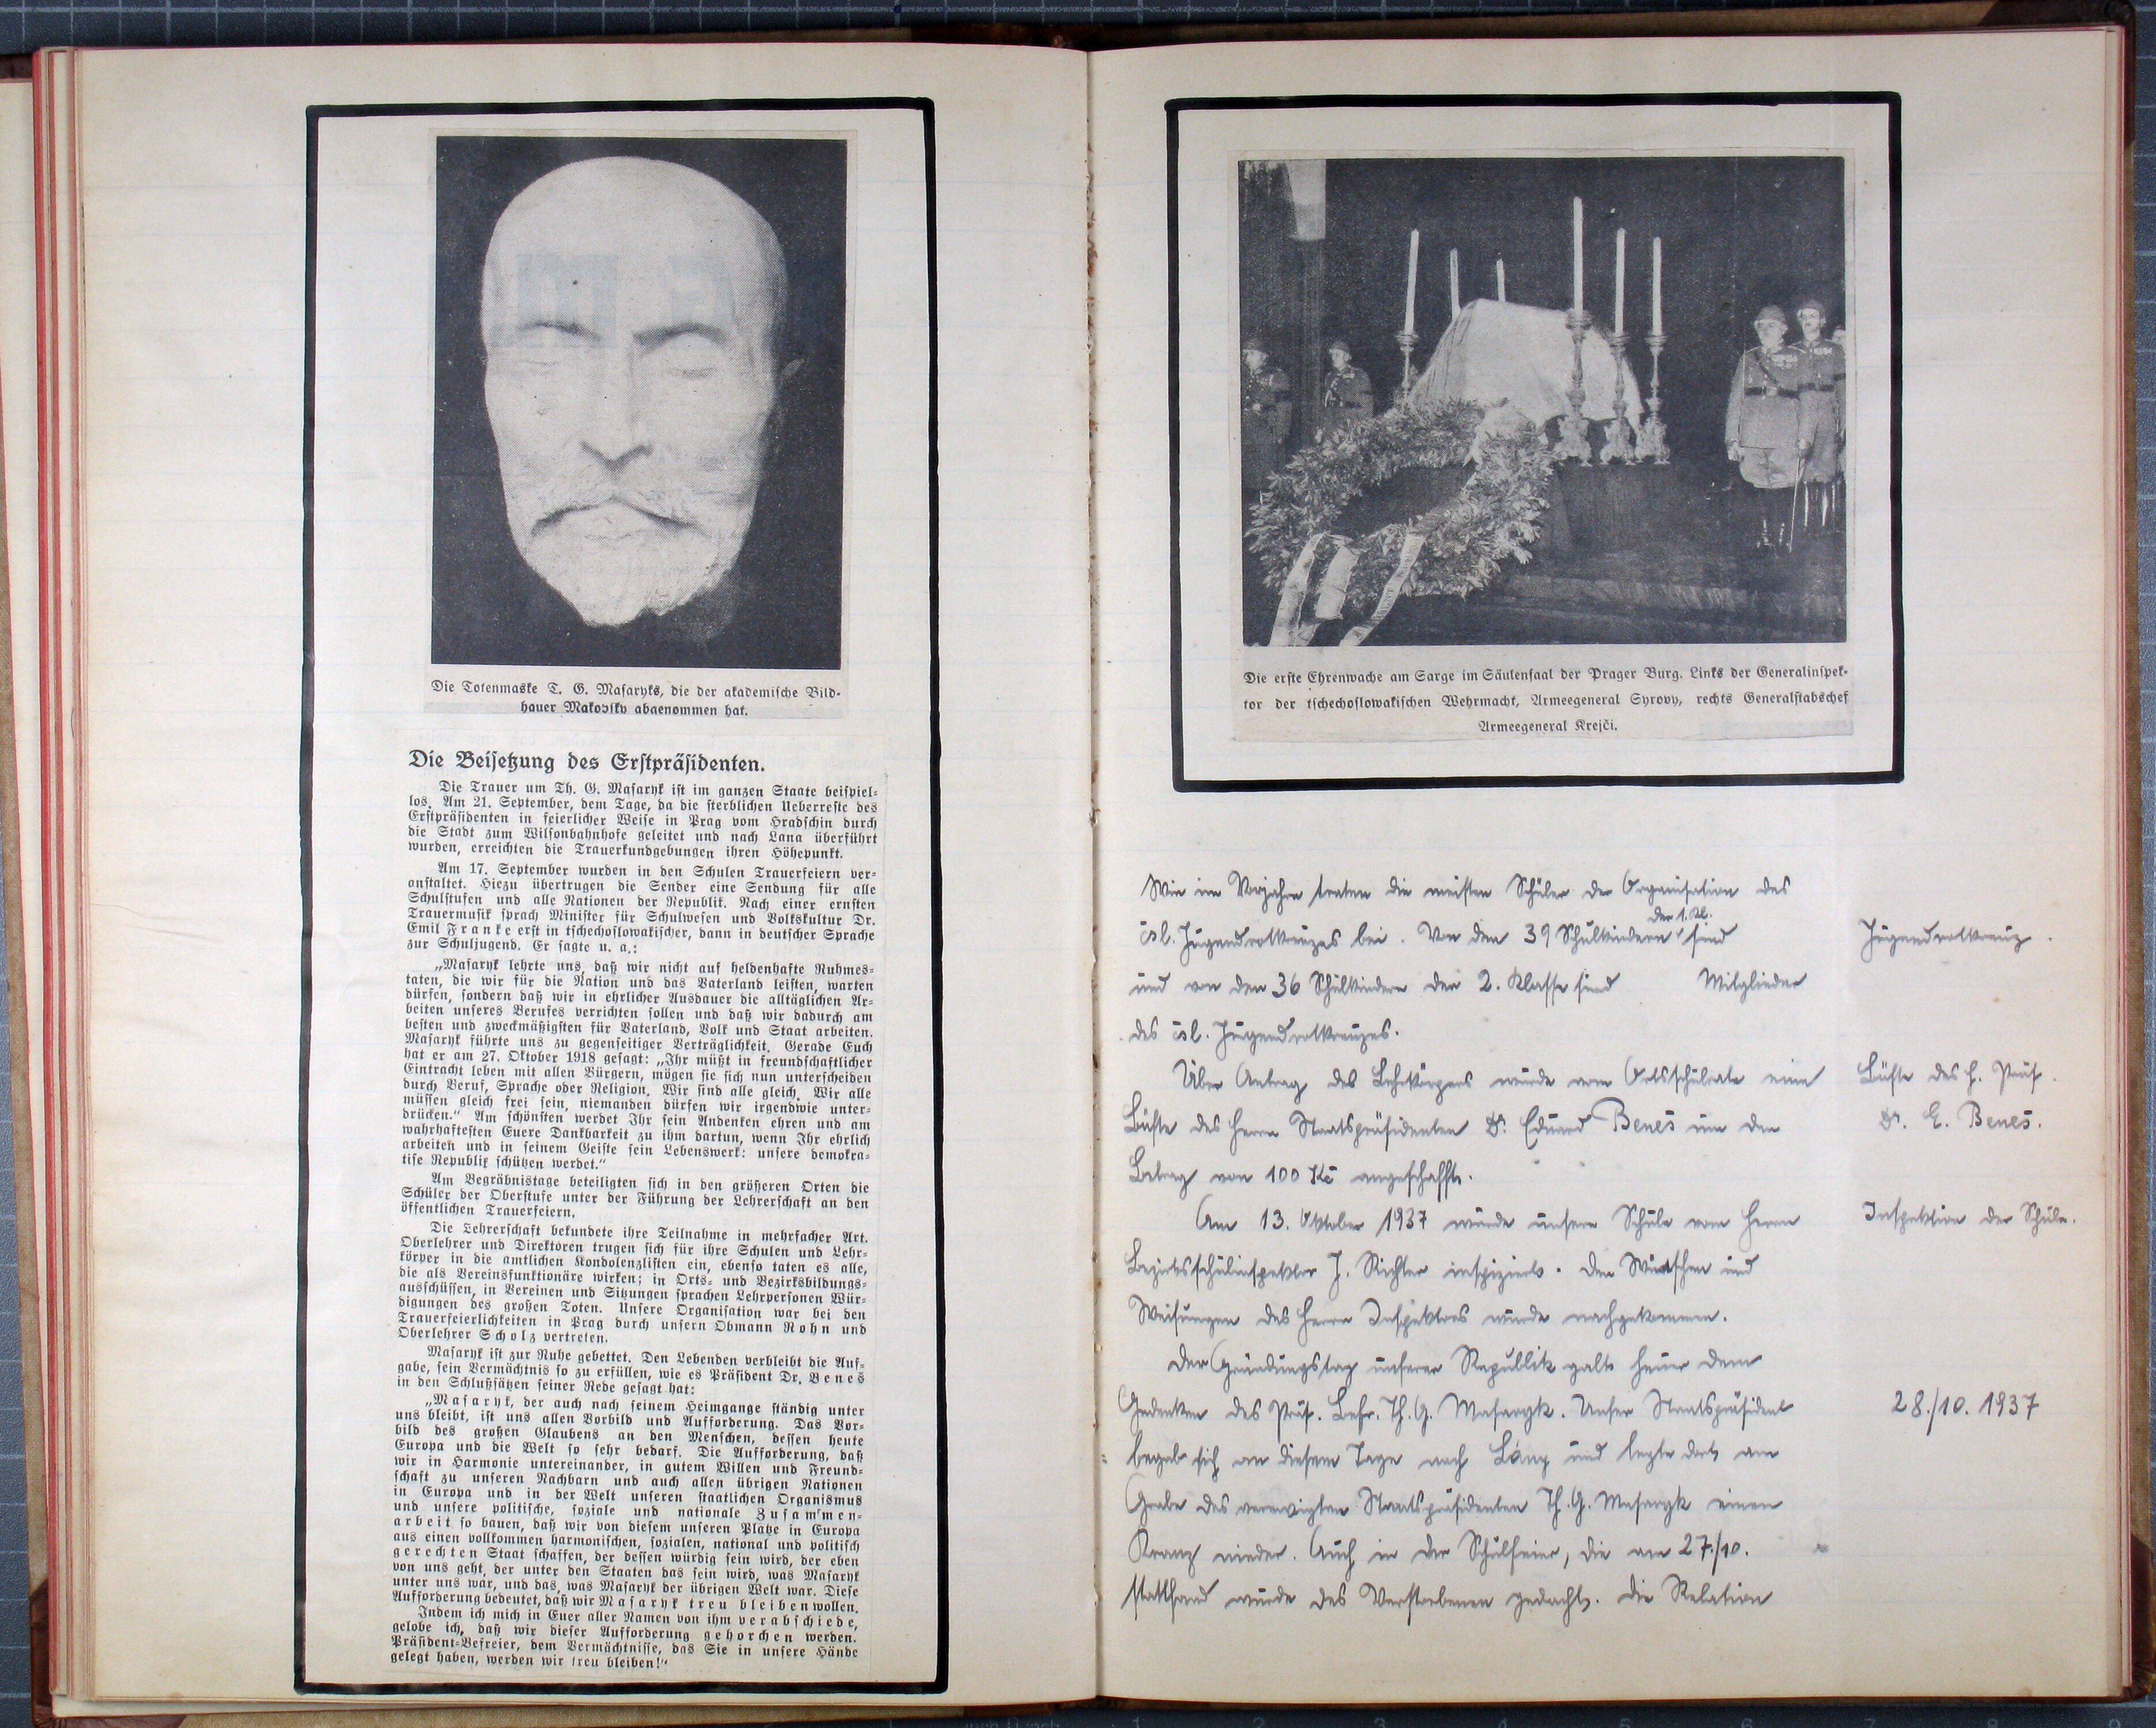 Die Totenmaske T. G. Masaryks, die der akademische Bild-
hauer Makovsky abgenommen hat.
Die Beisetzung des Erstpräsidenten.
Die Trauer um Th. G. Masaryk ist im ganzen Staate beispiel-
los. Am 21. September, dem Tage, da die sterblichen Ueberreste des
Erstpräsidenten in feierlicher Weise in Prag vom Hradschin durch
die Stadt zum Wilsonbahnhofe geleitet und nach Lana überführt
wurden, erreichten die Trauerkundgebungen ihren Höhepunkt.
Am 17. September wurden in den Schulen Trauerfeiern ver-
anstaltet. Hiezu übertrugen die Sender eine Sendung für alle
Schulstufen und alle Nationen der Republik. Nach einer ernsten
Trauermusik sprach Minister für Schulwesen und Volkskultur Dr.
Emil Franke erst in tschechoslowakischer, dann in deutscher Sprache
zur Schuljugend. Er sagte u. a.:
„Masaryk lehrte uns, daß wir nicht auf heldenhafte Ruhmes-
taten, die wir für die Nation und das Vaterland leisten, warten
dürfen, sondern daß wir in ehrlicher Ausdauer die alltäglichen Ar-
beiten unseres Berufes verrichten sollen und daß wir dadurch am
besten und zweckmäßigsten für Vaterland, Volk und Staat arbeiten.
Masaryk führte uns zu gegenseitiger Verträglichkeit. Gerade Euch
hat er am 27. Oktober 1918 gesagt: „Ihr müßt in freundschaftlicher
Eintracht leben mit allen Bürgern, mögen sie sich nun unterscheiden
durch Beruf, Sprache oder Religion. Wir sind alle gleich. Wir alle
müssen gleich frei sein, niemanden dürfen wir irgendwie unter-
drücken.“ Am schönsten werdet Ihr sein Andenken ehren und am
wahrhaftesten Euere Dankbarkeit zu ihm dartun, wenn Ihr ehrlich
arbeiten und in seinem Geiste sein Lebenswerk: unsere demokra-
tise Republik schützen werdet.“
Am Begräbnistage beteiligten sich in den größeren Orten die
Schüler der Oberstufe unter der Führung der Lehrerschaft an den
öffentlichen Trauerfeiern.
Die Lehrerschaft bekundete ihre Teilnahme in mehrfacher Art.
Oberlehrer und Direktoren trugen sich für ihre Schulen und Lehr-
körper in die amtlichen Kondolenzlisten ein, ebenso taten es alle,
die als Vereinsfunktionäre wirken; in Orts- und Bezirksbildungs-
ausschüssen, in Vereinen und Sitzungen sprachen Lehrpersonen Wür-
digungen des großen Toten. Unsere Organisation war bei den
Trauerfeierlichkeiten in Prag durch unsern Obmann Rohn und
Oberlehrer Scholz vertreten.
Masaryk ist zur Ruhe gebettet. Den Lebenden verbleibt die Auf-
gabe, sein Vermächtnis so zu erfüllen, wie es Präsident Dr. Beneš
in den Schlußsätzen seiner Rede gesagt hat:
„Masaryk, der auch nach seinem Heimgange ständig unter
uns bleibt, ist uns allen Vorbild und Aufforderung. Das Vor-
bild des großen Glaubens an den Menschen, dessen heute
Europa und die Welt so sehr bedarf. Die Aufforderung, daß
wir in Harmonie untereinander, in gutem Willen und Freund-
schaft zu unseren Nachbarn und auch allen übrigen Nationen
in Europa und in der Welt unseren staatlichen Organismus
und unsere politische, soziale und nationale Zusammen-
arbeit so bauen, daß wir von diesem unseren Platze in Europa
aus einen vollkommen harmonischen, sozialen, national und politisch
gerechten Staat schaffen, der dessen würdig sein wird, der eben
von uns geht, der unter den Staaten das sein wird, was Masaryk
unter uns war, und das, was Masaryk der übrigen Welt war. Diese
Aufforderung bedeutet, daß wir Masaryk treu bleiben wollen.
Indem ich mich in Euer aller Namen von ihm verabschiede,
gelobe ich, daß wir dieser Aufforderung gehorchen werden.
Präsident-Befreier, dem Vermächtnisse, das Sie in unsere Hände
gelegt haben, werden wir treu bleiben!“
Die erste Ehrenwache am Sarge im Säulensaal der Prager Burg. Links der Generalinspek-
tor der tschechoslowakischen Wehrmacht, Armeegeneral Syrovy, rechts Generalstabschef
Armeegeneral Krejči.
Wie im Vorjahre traten die meisten Schüler der Organisation des
čsl. Jugendrotkreuzes bei. Von den 39 Schulkindern der 1. Kl. sind
Jugendrotkreuz.
und von den 36 Schulkindern der 2. Klasse sind Mitglieder
des čsl. Jugendrotkreuzes.
Über Antrag des Lehrkörpers wurde vom Ortsschulrate eine
Büste des H. Präs.
Büste des Herrn Staatspräsidenten Dr. Eduard Beneš um den
Dr. E. Beneš.
Betrag von 100 Kč angeschafft.
Am 13. Oktober 1937 wurde unsere Schule vom Herrn
Inspektion der Schule.
Bezirksschulinspektor J. Richter inspiziert. Den Wünschen und
Weisungen des Herrn Inspektors wurde nachgekommen.
Der Gründungstag unserer Republik galt heuer dem
Gedenken des Präs. Befr. Th. G. Masaryk. Unser Staatspräsident
28./10. 1937
begab sich an diesem Tage nach Lány und legte dort am
Grabe des verewigten Staatspräsidenten Th. G. Masaryk einen
Kranz nieder. Auch in der Schulfeier, die am 27./10.
stattfand wurde des Verstorbenen gedacht. Die Relation